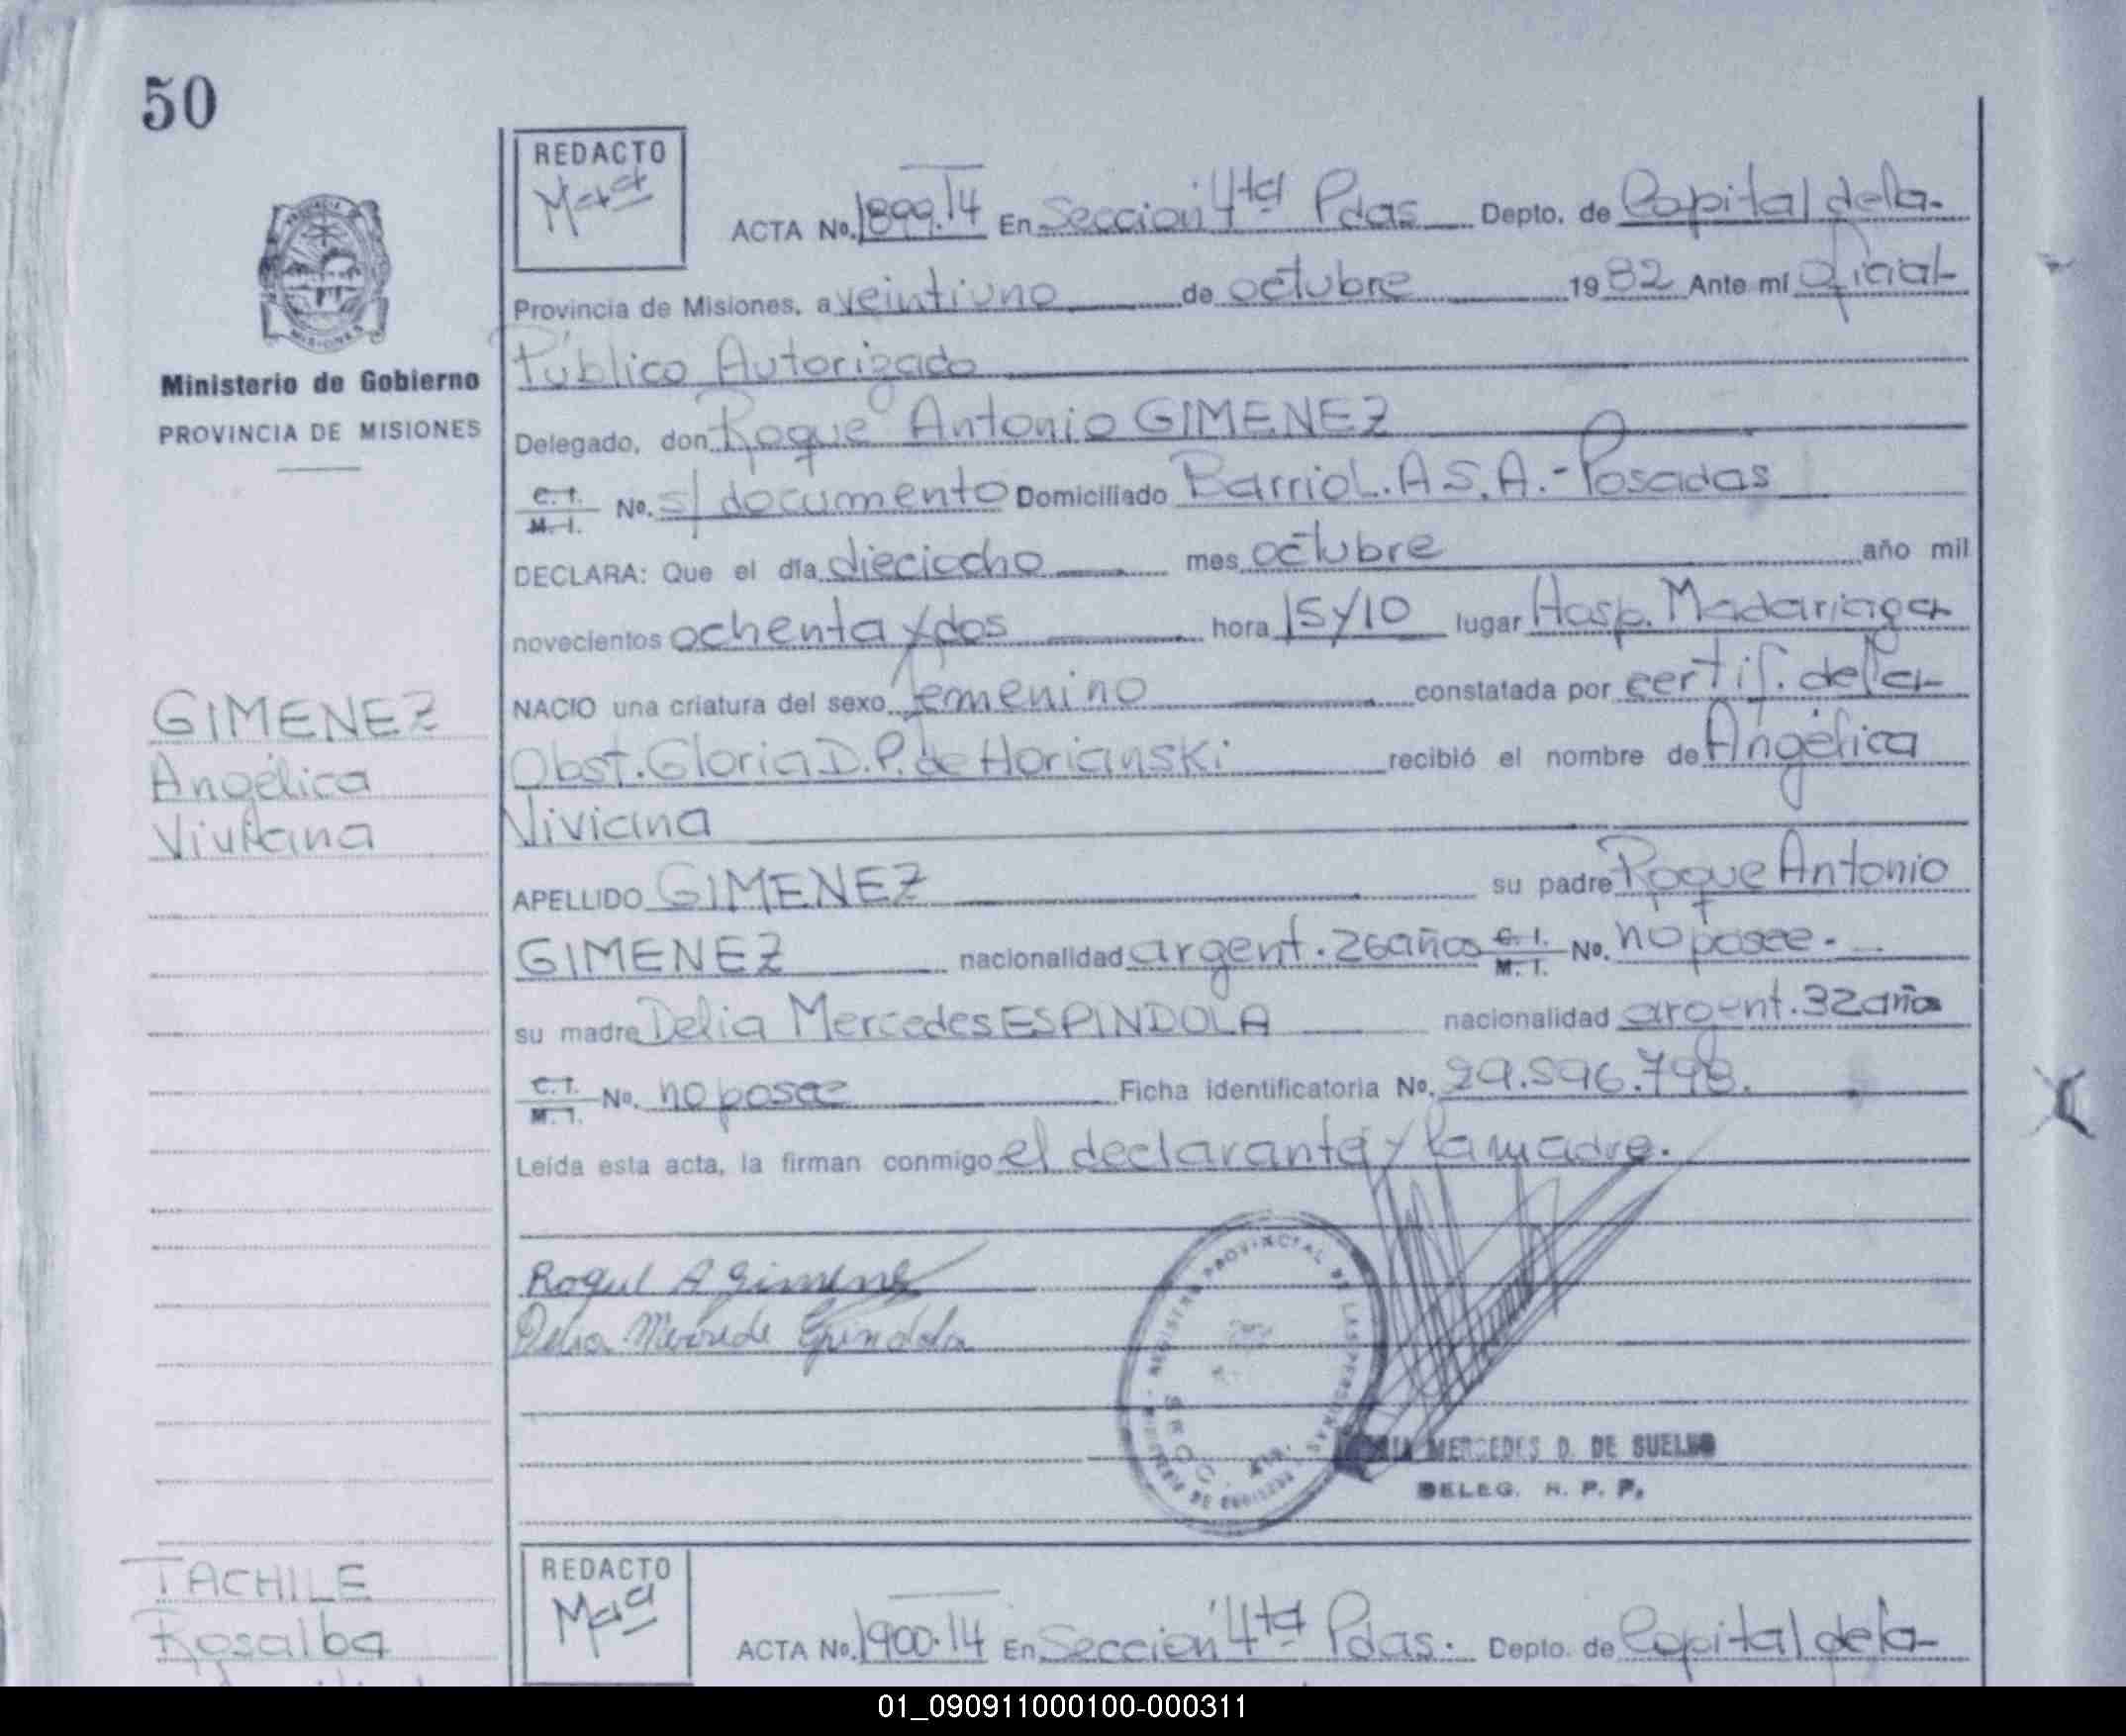 50
REDACTO
Maa
ACTA No. 1899.14 En Sección 4ta Pdas Depto. de Capital dela
Provincia de Misiones, a veintiuno de octubre 1982 Ante mi Oficial
Público Autorizado
Ministerio de Gobierno
PROVINCIA DE MISIONES
Delegado, don Roque Antonio GIMENEZ
C. I. M. I. No. s/ documento Domiciliado Barrio L.A S.A.- Posadas
DECLARA: Que el día dieciocho mes octubre año mil
novecientos ochenta y dos hora 15y10 lugar Hosp. Madariaga
NACIO una criatura del sexo femenino constatada por certif. de la
Obst. Gloria D.P. de Horianski recibió el nombre de Angélica
Viviana
GIMENEZ
Angélica
Viviana
APELLIDO GIMENEZ su padre Roque Antonio
GIMENEZ nacionalidad argent. 26 años C. I. M. I. No. no posee.
su madre Delia Mercedes ESPINDOLA nacionalidad argent. 32 años
C. I. M. I. No. no posee Ficha identificatoria No. 29.596.798.
Leída esta acta, la firman conmigo el declarante y la madre.
Roque A Gimenez
Delia Mercede Espindola
REGISTRO PROVINCIAL DE LAS PERSONAS
MERCEDES D. DE SUELDO
DELEG. R. P. P.
TACHILE
Rosalba
REDACTO
Maa
ACTA No. 1900.14 En Sección 4ta Pdas. Depto. de Capital dela
01_090911000100-000311